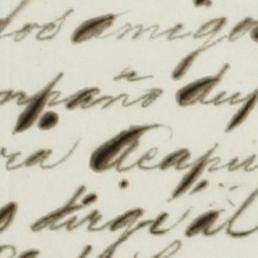 dos amigo
mpaño dup
ra Acapu
o dirgial